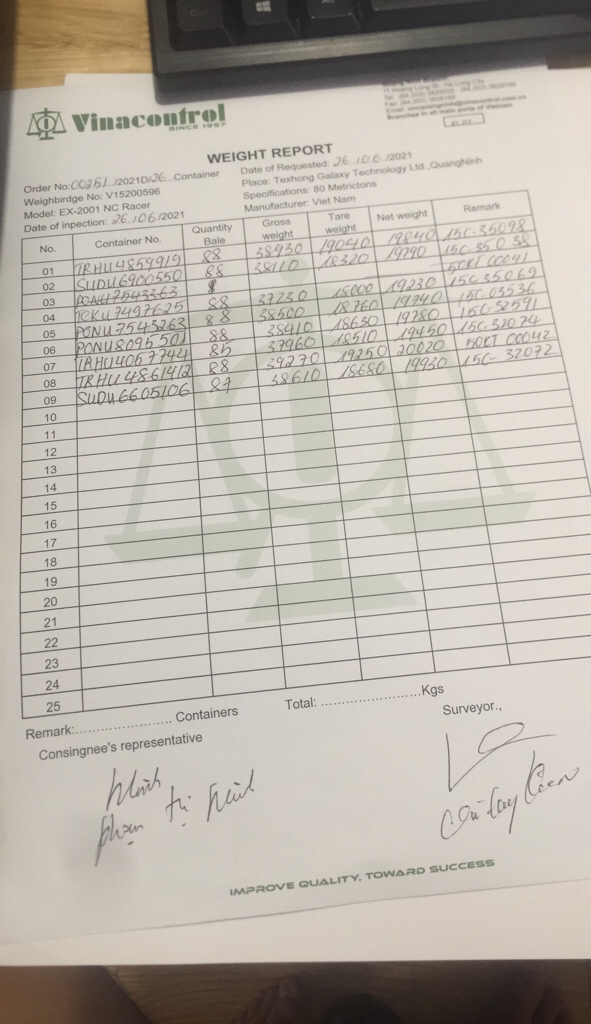 Vinacontrol
SINCE 1957
Branches in all main ports of Vietnam
WEIGHT REPORT
Order No:00351../2021D/26...Container
Date of Requested: 26./0.6./2021
Weighbirdge No: V15200596
Place: Texhong Galaxy Technology Ltd.,QuangNinh
Model: EX-2001 NC Racer
Specifications: 80 Metrictons
Date of inpection: 26./06/2021
Manufacturer: Viet Nam
No. Container No. Quantity Bale Gross weight Tare weight Net weight Remark
01 TRHU4859919 88 38930 19040 19840 15C-35098
02 SUDU6900550 88 38110 18320 19790 15C-35038
03 PONU7543363 50KT 00041
04 TCKU7497625 88 37230 18000 19230 15C35069
05 PONU7543263 88 38500 18760 19740 15C-03536
06 PONU8095501 88 38410 18630 19780 15C-32591
07 TRHU4057794 85 37960 18510 19450 15C 32074
08 TRHU4861412 88 39270 19250 20020 50KT 00042
09 SUDU6605106 87 38610 18680 19930 15C-32072
10
11
12
13
14
15
16
17
18
19
20
21
22
23
24
25
Remark:........................ Containers Total: ........................Kgs
Consingnee's representative Surveyor.,
IMPROVE QUALITY, TOWARD SUCCESS